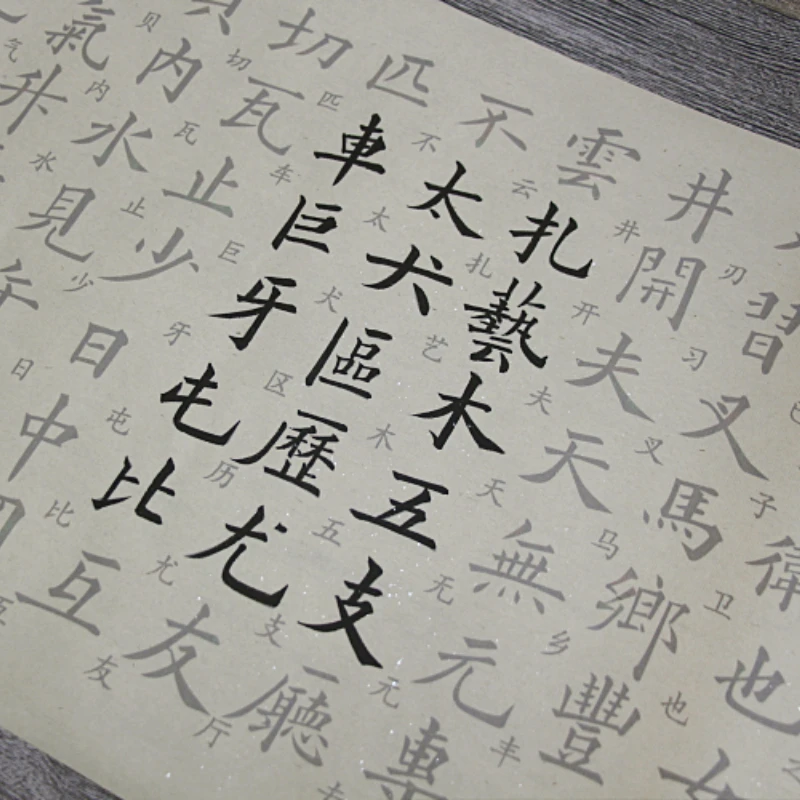 衛卫也也
刃習习叉叉馬马鄉乡豐丰
井井開开夫夫天天無无元元專
雲云扎扎藝艺木木五五支支廳厅
不不太太犬犬區区歷历尤尤友友
匹匹車车巨巨牙牙屯屯比比互
切切瓦瓦止止少少日日中
贝內内水水見
氣气升